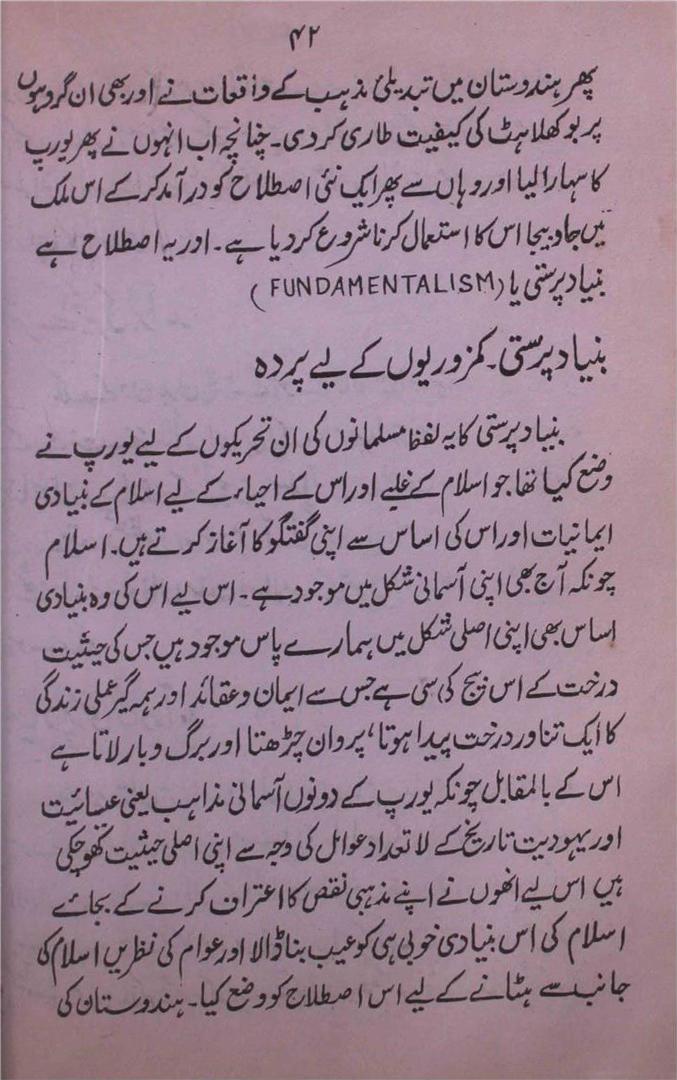 ۴۲
پھر ہندوستان میں تبدیلیٔ مذہب کے واقعات نے اور بھی ان گروہوں
پر بوکھلاہٹ کی کیفیت طاری کردی۔ چنانچہ اب انہوں نے پھر یورپ
کا سہارا لیا اور وہاں سے پھر ایک نئی اصطلاح کو درآمد کرکے اس ملک
میں جا و بیجا اس کا استعمال کرنا شروع کردیا ہے۔ اور یہ اصطلاح ہے
بنیاد پرستی یا (FUNDAMENTALISM)
بنیاد پرستی۔ کمزوریوں کے لیے پردہ
بنیاد پرستی کا یہ لفظ مسلمانوں کی ان تحریکوں کے لیے یورپ نے
وضع کیا تھا جو اسلام کے غلبے اور اس کے احیاء کے لیے اسلام کے بنیادی
ایمانیات اور اس کی اساس سے اپنی گفتگو کا آغاز کرتے ہیں۔ اسلام
چونکہ آج بھی اپنی آسمانی شکل میں موجود ہے۔ اس لیے اس کی وہ بنیادی
اساس بھی اپنی اصلی شکل میں ہمارے پاس موجود ہیں جس کی حیثیت
درخت کے اس بیج کی سی ہے جس سے ایمان و عقائد اور ہمہ گیر عملی زندگی
کا ایک تناور درخت پیدا ہوتا، پروان چڑھتا اور برگ و بار لاتا ہے
اس کے بالمقابل چونکہ یورپ کے دونوں آسمانی مذاہب یعنی عسائیت
اور یہودیت تاریخ کے لا تعداد عوامل کی وجہ سے اپنی اصلی حیثیت کھو چکی
ہیں اس لیے انھوں نے اپنے مذہبی نقص کا اعتراف کرنے کے بجائے
اسلام کی اس بنیادی خوبی ہی کو عیب بنا ڈالا اور عوام کی نظریں اسلام کی
جانب سے ہٹانے کے لیے اس اصطلاح کو وضع کیا۔ ہندوستان کی